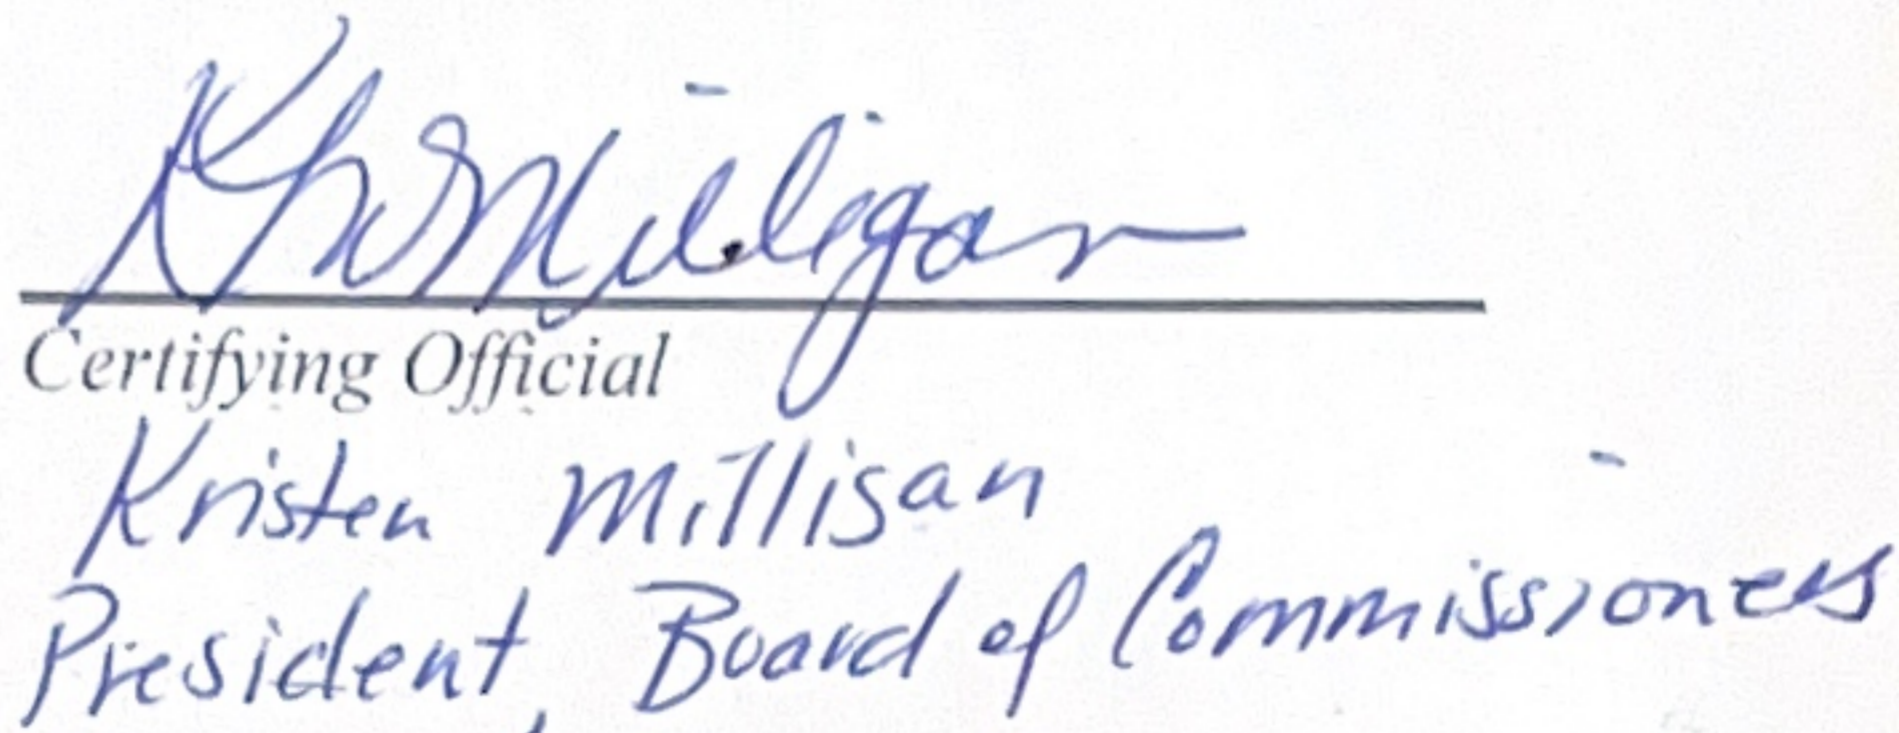 Certifying Official
Kristen Milligan
President, Board of Commissioners